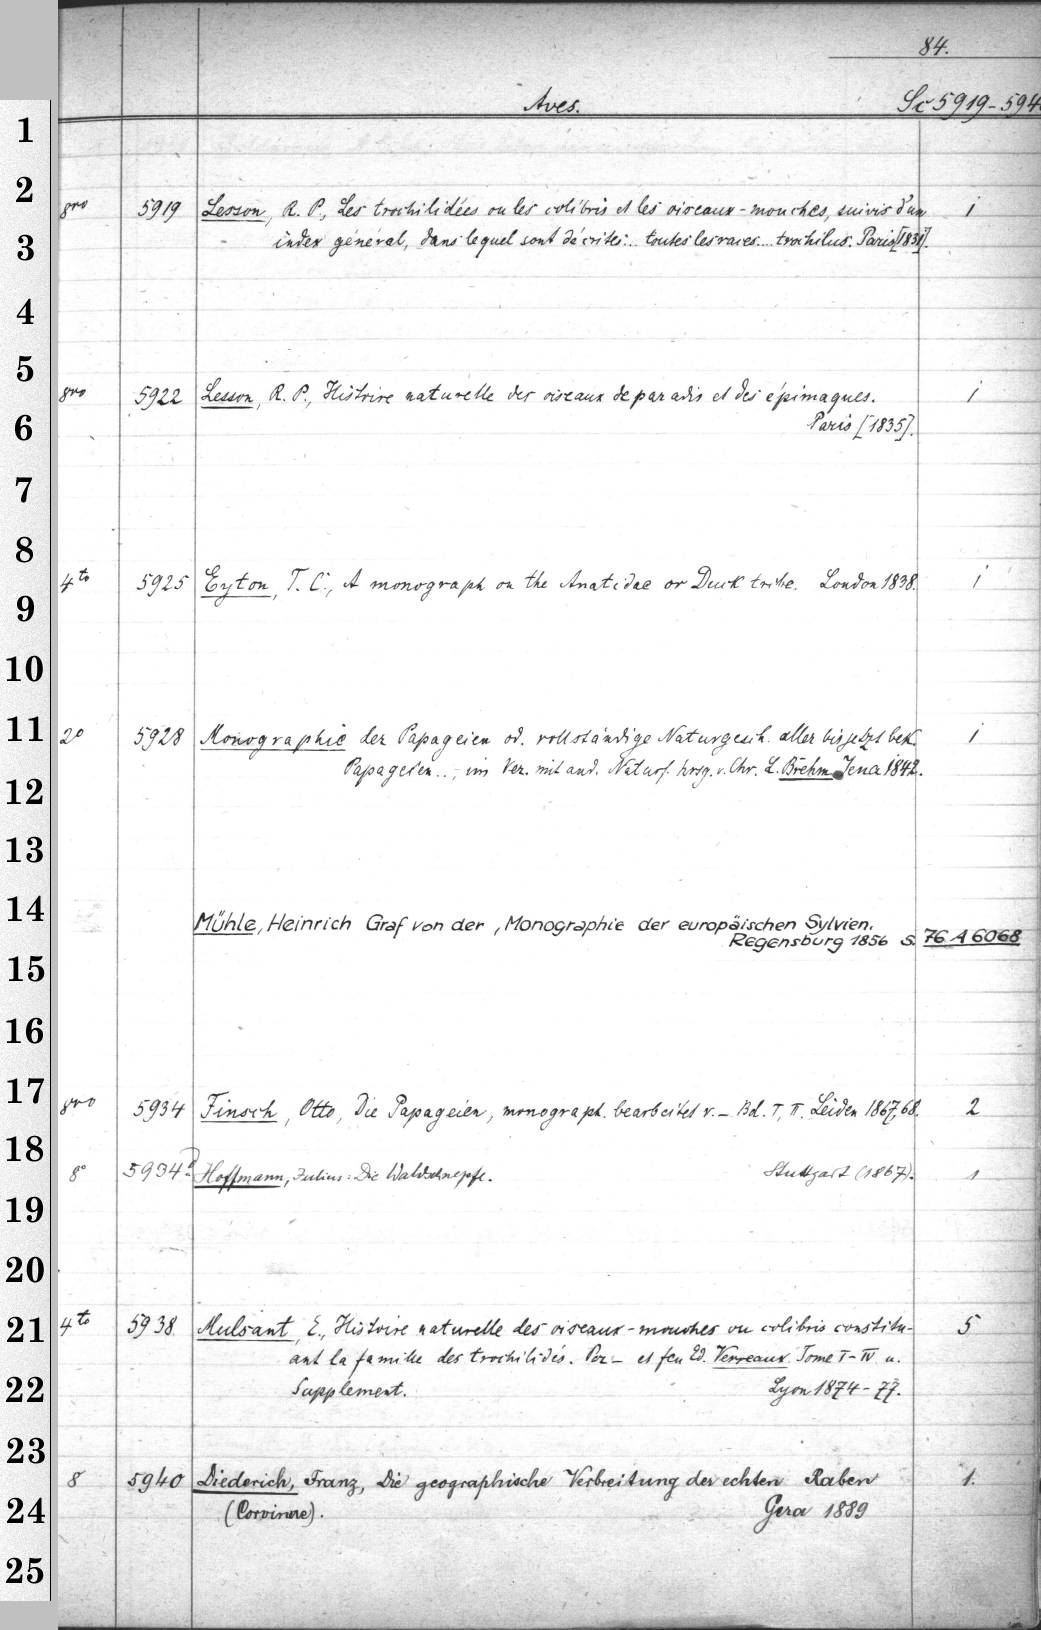 84.
Aves. Sc 5919-594
1
2
8vo 5919 Lesson, R. P., Les trochilidées ou les colibris et les oiseaux-mouches, suivis d'un 1
3
index général, dans lequel sont décrites... toutes les races... trochilus. Paris [1831].
4
5
8vo 5922 Lesson, R. P., Histoire naturelle des oiseaux de paradis et des épimaques. 1
6
Paris [1835].
7
8
4to 5925 Eyton, T. C., A monograph on the Anatidae or Duck tribe. London 1838. 1
9
10
11
2o 5928 Monographie der Papageien od. vollständige Naturgesch. aller bis jetzt bek. 1
Papageien..., im Ver. mit and. Naturf. hrsg. v. Chr. L. Brehm. Jena 1842.
12
13
14
Mühle, Heinrich Graf von der, Monographie der europäischen Sylvien.
Regensburg 1856 S. 76 A 6068
15
16
17
8vo 5934 Finsch, Otto, Die Papageien, monograph. bearbeitet v. – Bd. I, II. Leiden 1867,68. 2
18
8° 5934a Hoffmann, Julius: Die Waldschnepfe. Stuttgart (1867). 1
19
20
21
4to 5938 Mulsant, E., Histoire naturelle des oiseaux-mouches ou colibris constitu- 5
ant la famille des trochilidés. Par – et feu Ed. Verreaux. Tome I–IV u.
22
Supplement. Lyon 1874-77.
23
8 5940 Diederich, Franz, Die geographische Verbreitung der echten Raben 1.
24
(Corvinae). Gera 1889
25